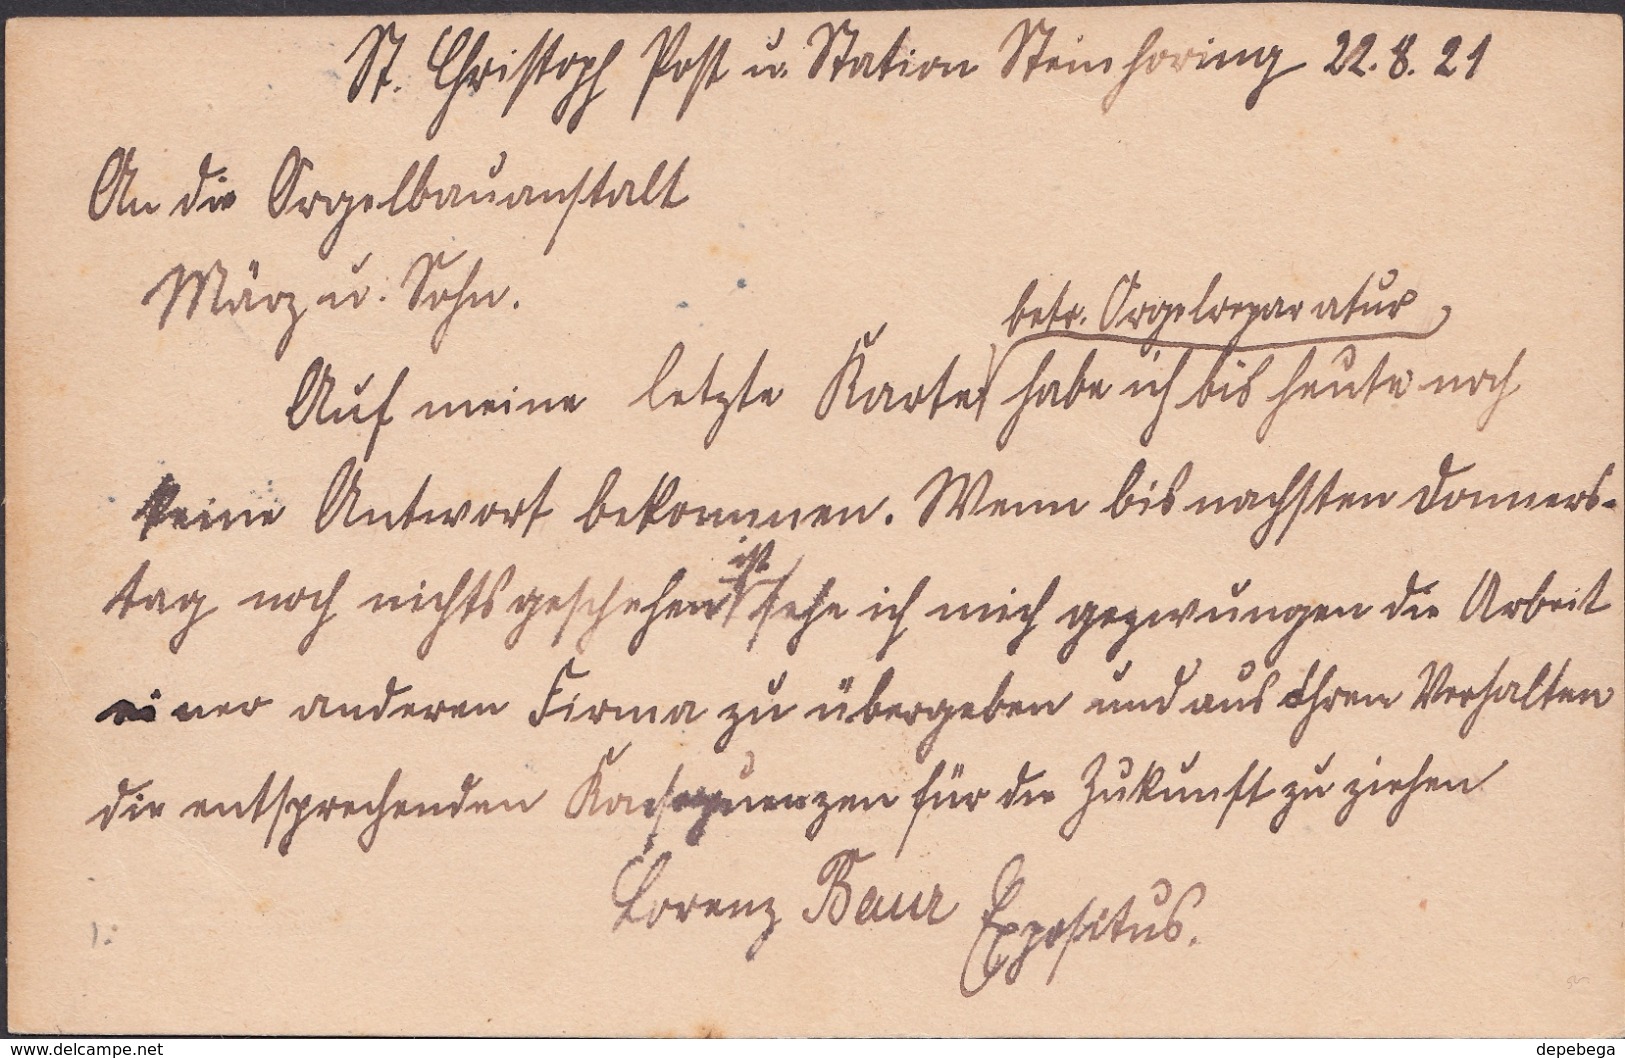 St. Christoph Post u. Station Steinhöring 22.8.21
An die Orgelbauanstalt
März u. Sohn.
betr. Orgelreparatur
Auf meine letzte Karte habe ich bis heute noch
keine Antwort bekommen. Wenn bis nächsten Donners-
ist
tag noch nichts geschehen sehe ich mich gezwungen die Arbeit
einer anderen Firma zu übergeben und aus Ihren Verhalten
die entsprechenden Konsequenzen für die Zukunft zu ziehen
Lorenz Baur Expositus.
www.delcampe.net
depebega